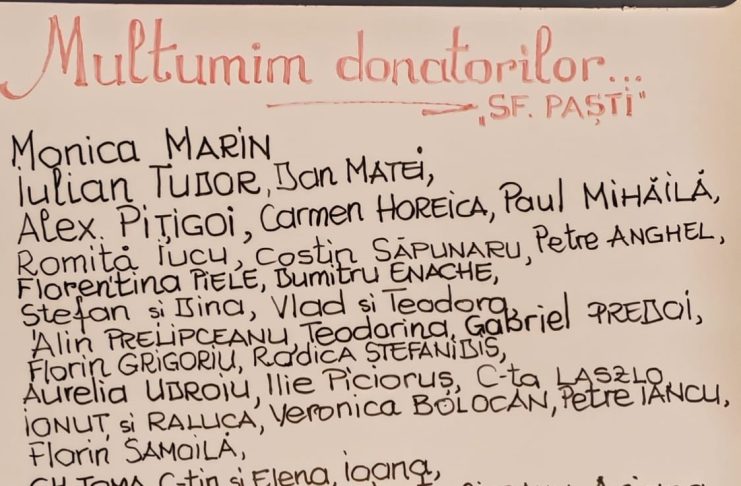 Multumim donatorilor...
"SF. PAȘTI"
Monica MARIN
Iulian TUDOR, Dan MATEI,
Alex. PIȚIGOI, Carmen HOREICA, Paul MIHĂILĂ,
Romită Iucu, Costin SĂPUNARU, Petre ANGHEL,
Florentina PIELE, Dumitru ENACHE,
Stefan si Dina, Vlad si Teodora,
Alin PRELIPCEANU, Teodorina, Gabriel PREDOI,
Florin GRIGORIU, Rodica STEFANIDIS,
Aurelia UDROIU, Ilie Piciorus, C-ta LASZLO
IONUT si RALUCA, Veronica BOLOCAN, Petre IANCU,
Florin SAMOILĂ,
GH. TOMA, C-tin si Elena, Ioana,